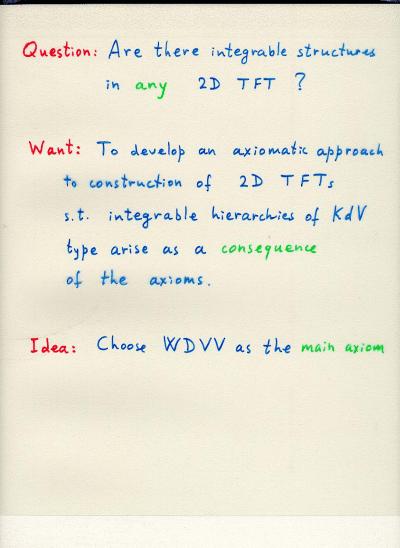 Question: Are there integrable structures
in any 2D TFT ?
Want: To develop an axiomatic approach
to construction of 2D TFTs
s.t. integrable hierarchies of KdV
type arise as a consequence
of the axioms.
Idea: Choose WDVV as the main axiom